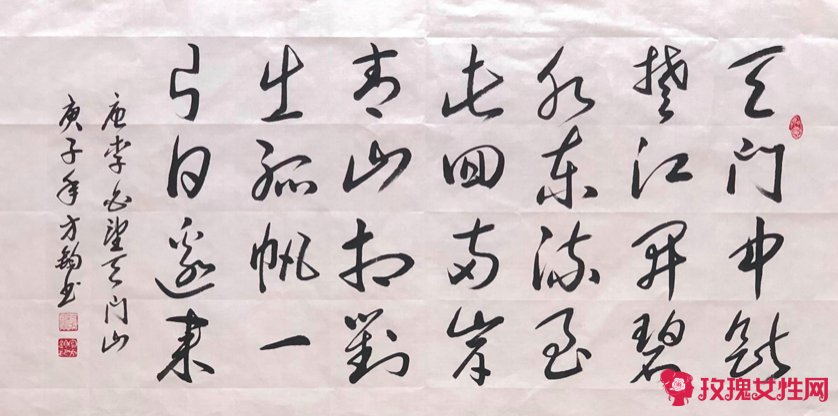 天门中断
楚江开碧
水东流至
此回两岸
青山相对
出孤帆一
片日边来
唐李白望天门山
庚子年方韵书
玫瑰女性网